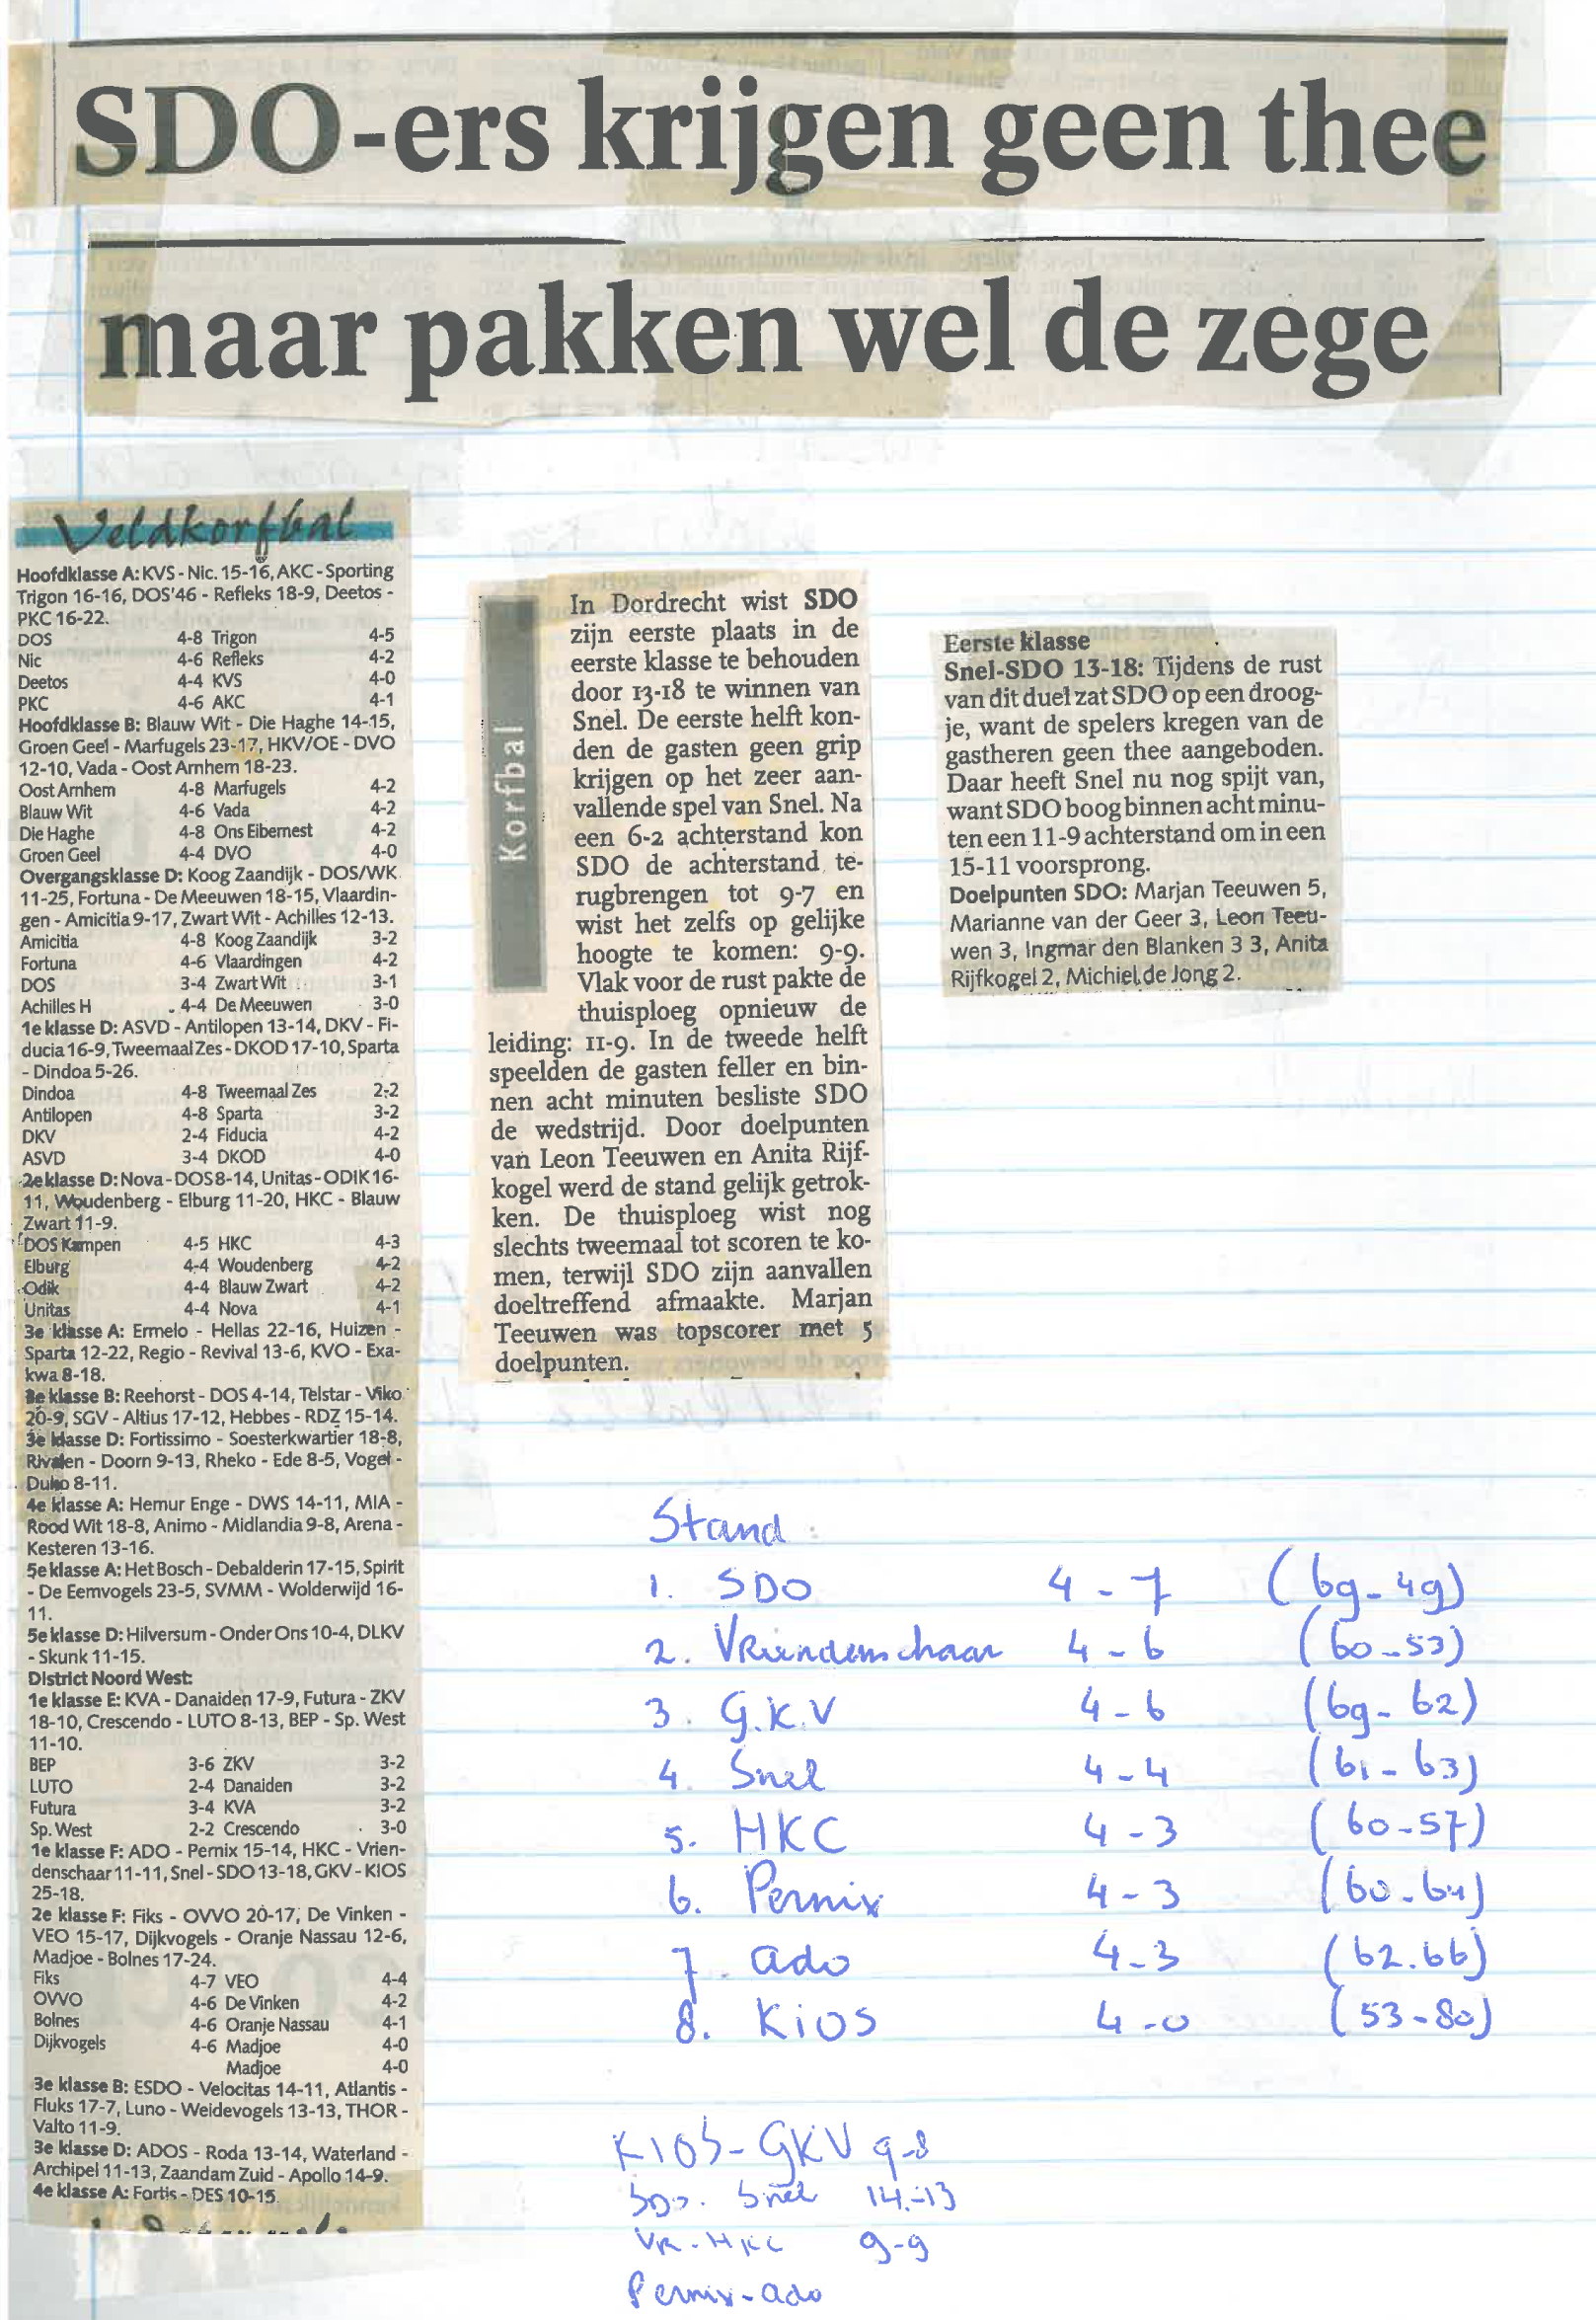 SDO-ers krijgen geen thee
maar pakken wel de zege
Veldkorfbal
Hoofdklasse A: KVS - Nic. 15-16, AKC - Sporting
Trigon 16-16, DOS'46 - Refleks 18-9, Deetos -
PKC 16-22.
DOS 4-8 Trigon 4-5
Nic 4-6 Refleks 4-2
Deetos 4-4 KVS 4-0
PKC 4-6 AKC 4-1
Hoofdklasse B: Blauw Wit - Die Haghe 14-15,
Groen Geel - Marfugels 23-17, HKV/OE - DVO
12-10, Vada - Oost Arnhem 18-23.
Oost Arnhem 4-8 Marfugels 4-2
Blauw Wit 4-6 Vada 4-2
Die Haghe 4-8 Ons Eibernest 4-2
Groen Geel 4-4 DVO 4-0
Overgangsklasse D: Koog Zaandijk - DOS/WK
11-25, Fortuna - De Meeuwen 18-15, Vlaardin-
gen - Amicitia 9-17, Zwart Wit - Achilles 12-13.
Amicitia 4-8 Koog Zaandijk 3-2
Fortuna 4-6 Vlaardingen 4-2
DOS 3-4 Zwart Wit 3-1
Achilles H 4-4 De Meeuwen 3-0
1e klasse D: ASVD - Antilopen 13-14, DKV - Fi-
ducia 16-9, Tweemaal Zes - DKOD 17-10, Sparta
- Dindoa 5-26.
Dindoa 4-8 Tweemaal Zes 2-2
Antilopen 4-8 Sparta 3-2
DKV 2-4 Fiducia 4-2
ASVD 3-4 DKOD 4-0
2e klasse D: Nova - DOS 8-14, Unitas - ODIK 16-
11, Woudenberg - Elburg 11-20, HKC - Blauw
Zwart 11-9.
DOS Kampen 4-5 HKC 4-3
Elburg 4-4 Woudenberg 4-2
Odik 4-4 Blauw Zwart 4-2
Unitas 4-4 Nova 4-1
3e klasse A: Ermelo - Hellas 22-16, Huizen -
Sparta 12-22, Regio - Revival 13-6, KVO - Exa-
kwa 8-18.
3e klasse B: Reehorst - DOS 4-14, Telstar - Viko
20-9, SGV - Altius 17-12, Hebbes - RDZ 15-14.
3e klasse D: Fortissimo - Soesterkwartier 18-8,
Rivalen - Doorn 9-13, Rheko - Ede 8-5, Vogel -
Duko 8-11.
4e klasse A: Hemur Enge - DWS 14-11, MIA -
Rood Wit 18-8, Animo - Midlandia 9-8, Arena -
Kesteren 13-16.
5e klasse A: Het Bosch - Debalderin 17-15, Spirit
- De Eemvogels 23-5, SVMM - Wolderwijd 16-
11.
5e klasse D: Hilversum - Onder Ons 10-4, DLKV
- Skunk 11-15.
District Noord West:
1e klasse E: KVA - Danaiden 17-9, Futura - ZKV
18-10, Crescendo - LUTO 8-13, BEP - Sp. West
11-10.
BEP 3-6 ZKV 3-2
LUTO 2-4 Danaiden 3-2
Futura 3-4 KVA 3-2
Sp. West 2-2 Crescendo 3-0
1e klasse F: ADO - Pernix 15-14, HKC - Vrien-
denschaar 11-11, Snel - SDO 13-18, GKV - KIOS
25-18.
2e klasse F: Fiks - OVVO 20-17, De Vinken -
VEO 15-17, Dijkvogels - Oranje Nassau 12-6,
Madjoe - Bolnes 17-24.
Fiks 4-7 VEO 4-4
OVVO 4-6 De Vinken 4-2
Bolnes 4-6 Oranje Nassau 4-1
Dijkvogels 4-6 Madjoe 4-0
Madjoe 4-0
3e klasse B: ESDO - Velocitas 14-11, Atlantis -
Fluks 17-7, Luno - Weidevogels 13-13, THOR -
Valto 11-9.
3e klasse D: ADOS - Roda 13-14, Waterland -
Archipel 11-13, Zaandam Zuid - Apollo 14-9.
4e klasse A: Fortis - DES 10-15.
Korfbal
In Dordrecht wist SDO
zijn eerste plaats in de
eerste klasse te behouden
door 13-18 te winnen van
Snel. De eerste helft kon-
den de gasten geen grip
krijgen op het zeer aan-
vallende spel van Snel. Na
een 6-2 achterstand kon
SDO de achterstand te-
rugbrengen tot 9-7 en
wist het zelfs op gelijke
hoogte te komen: 9-9.
Vlak voor de rust pakte de
thuisploeg opnieuw de
leiding: 11-9. In de tweede helft
speelden de gasten feller en bin-
nen acht minuten besliste SDO
de wedstrijd. Door doelpunten
van Leon Teeuwen en Anita Rijf-
kogel werd de stand gelijk getrok-
ken. De thuisploeg wist nog
slechts tweemaal tot scoren te ko-
men, terwijl SDO zijn aanvallen
doeltreffend afmaakte. Marjan
Teeuwen was topscorer met 5
doelpunten.
Eerste klasse
Snel-SDO 13-18: Tijdens de rust
van dit duel zat SDO op een droog-
je, want de spelers kregen van de
gastheren geen thee aangeboden.
Daar heeft Snel nu nog spijt van,
want SDO boog binnen acht minu-
ten een 11-9 achterstand om in een
15-11 voorsprong.
Doelpunten SDO: Marjan Teeuwen 5,
Marianne van der Geer 3, Leon Teeu-
wen 3, Ingmar den Blanken 3 3, Anita
Rijfkogel 2, Michiel de Jong 2.
Stand
1. SDO 4-7 (69-49)
2. Vriendenschaar 4-6 (60-53)
3. G.K.V 4-6 (69-62)
4. Snel 4-4 (61-63)
5. HKC 4-3 (60-57)
6. Pernix 4-3 (60-64)
7. ado 4-3 (62.66)
8. Kios 4-0 (53-80)
KIOS-GKV 9-8
SDO. Snel 14-13
VR.-HKC 9-9
Pernix-ado